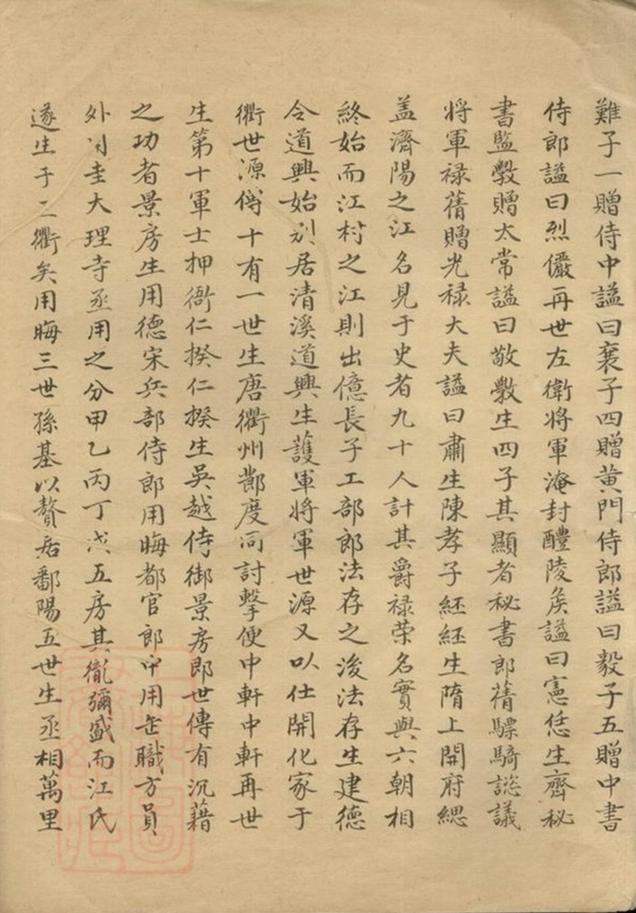 難子一贈侍中謚曰裦子四贈黄門侍郎謚曰毅子五贈中書
侍郎謚曰烈儼再世左衛將軍淹封醴陵矦謚曰憲恁生齊秘
書監斆贈太常謚曰敬斆生四子其顯者秘書郎蒨驃騎諮議
將軍禄蒨贈光禄大夫謚曰肅生陳孝子紑紑生隋上開府緫
盖濟陽之江名見于史者九十人計其爵禄荣名實與六朝相
終始而江村之江則出億長子工部郎法存之後法存生建德
令道興始別居清溪道興生護軍將軍世源又以仕開化家于
衢世源傳十有一世生唐衢州鄼度同討擊使中軒中軒再世
生第十軍士押衙仁揆仁揆生吳越侍御景房郎世傳有沉藉
之功者景房生用德宋兵部侍郎用晦都官郎中用 職方員
外 圭大理寺丞用之分甲乙丙丁戊五房其 彌盛而江氏
遂生于二衢矣用晦三世孫基以贅居鄱陽五世生丞相萬里